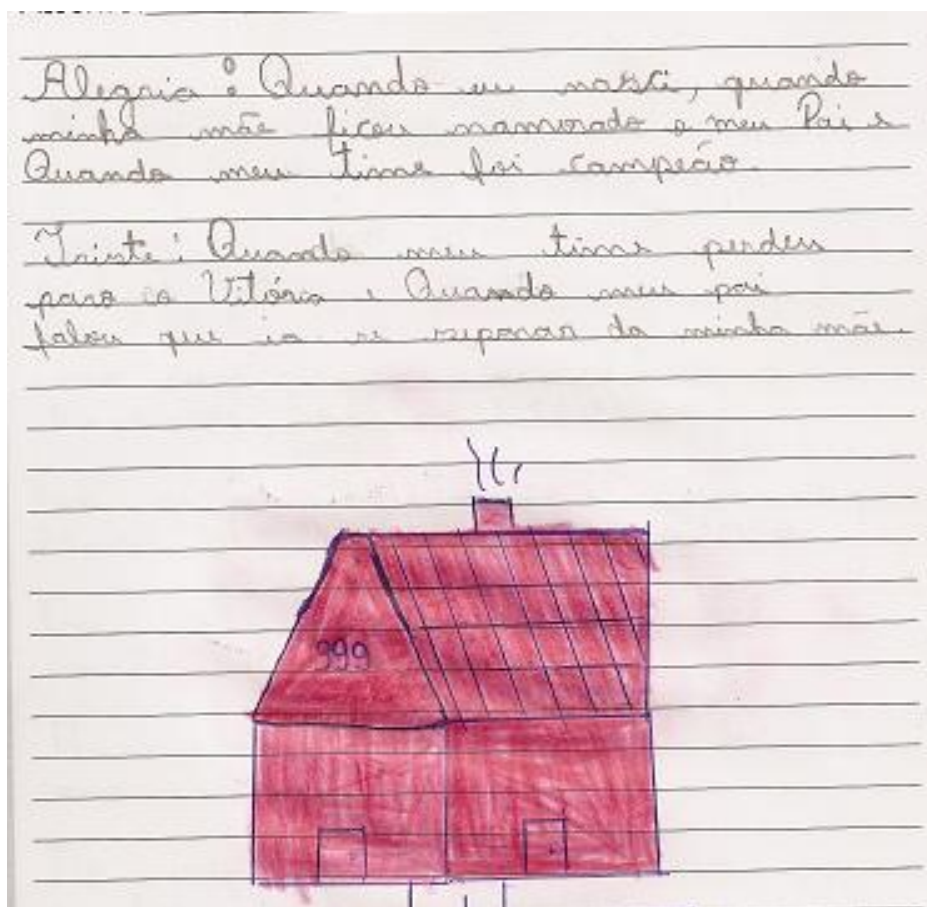 Alegria: Quando eu nasci, quando
minha mãe ficou namorado o meu Pai e
Quando meu time foi campeão.
Triste: Quando meu time perdeu
para o Vitória e Quando meu pai
falou que ia se separar da minha mãe.
999